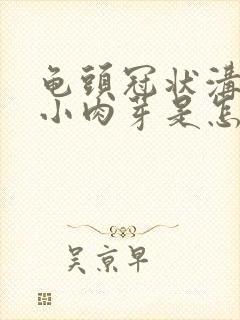 龟頭冠状溝
小肉芽是怎
吴京早